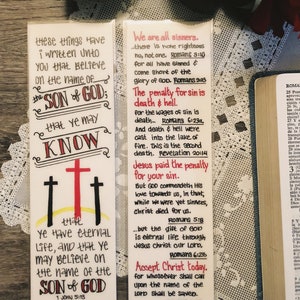 these things have
I written unto
you that believe
on the name of
the SON of GOD;
that ye may
KNOW
that
ye have eternal
life, and that ye
may believe on
the name of the
SON of GOD
1 John 5:13
We are all sinners.
...there is none righteous
no, not one. Romans 3:10
for all have sinned &
come short of the
glory of God. Romans 3:23
The penalty for sin is
death & hell.
for the wages of sin is
death... Romans 6:23a
And death & hell were
cast into the lake of
fire. This is the second
death. Revelation 20:14
Jesus paid the penalty
for your sin.
But God commendeth His
love towards us, in that,
while we were yet sinners,
Christ died for us.
Romans 5:8
...but the gift of God
is eternal life through
Jesus Christ our Lord.
Romans 6:23b
Accept Christ today.
for whosoever shall call
upon the name of the
Lord shall be saved.